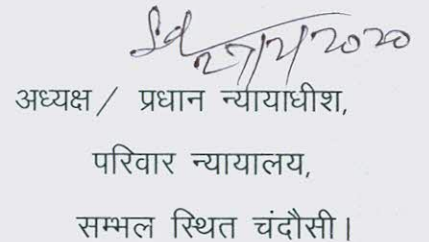 Sd
अध्यक्ष / प्रधान न्यायाधीश,
परिवार न्यायालय,
सम्भल स्थित चंदौसी।